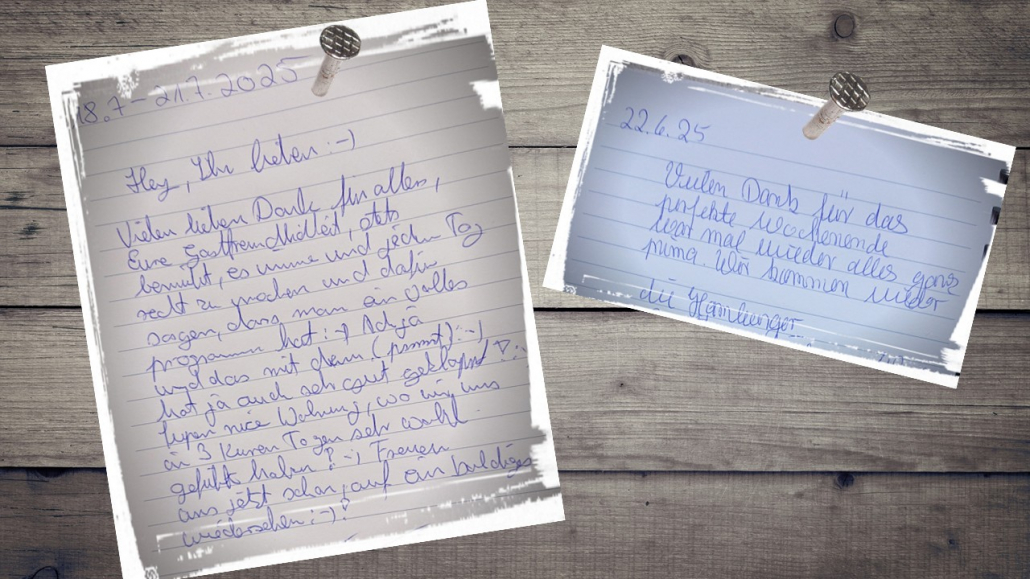 18.7-21.7.2025
Hey, Ihr lieben :-)
Vielen lieben Dank für alles,
Eure Gastfreundlichkeit, stets
bemüht, es immer und jeden Tag
recht zu machen und dafür
sagen, dass man ein volles
programm hat :-) Ach ja
und das mit dem :-)
hat ja auch sehr gut geklappt
super nice Wohnung, wo wir uns
in 3 Kurzen Tagen sehr wohl
gefühlt haben! :-) Freuen
uns jetzt schon, auf ein baldiges
wiedersehen :-)!
22.6.25
Vielen Dank für das
perfekte Wochenende
war mal wieder alles ganz
prima Wir kommen wieder
die Hamburger